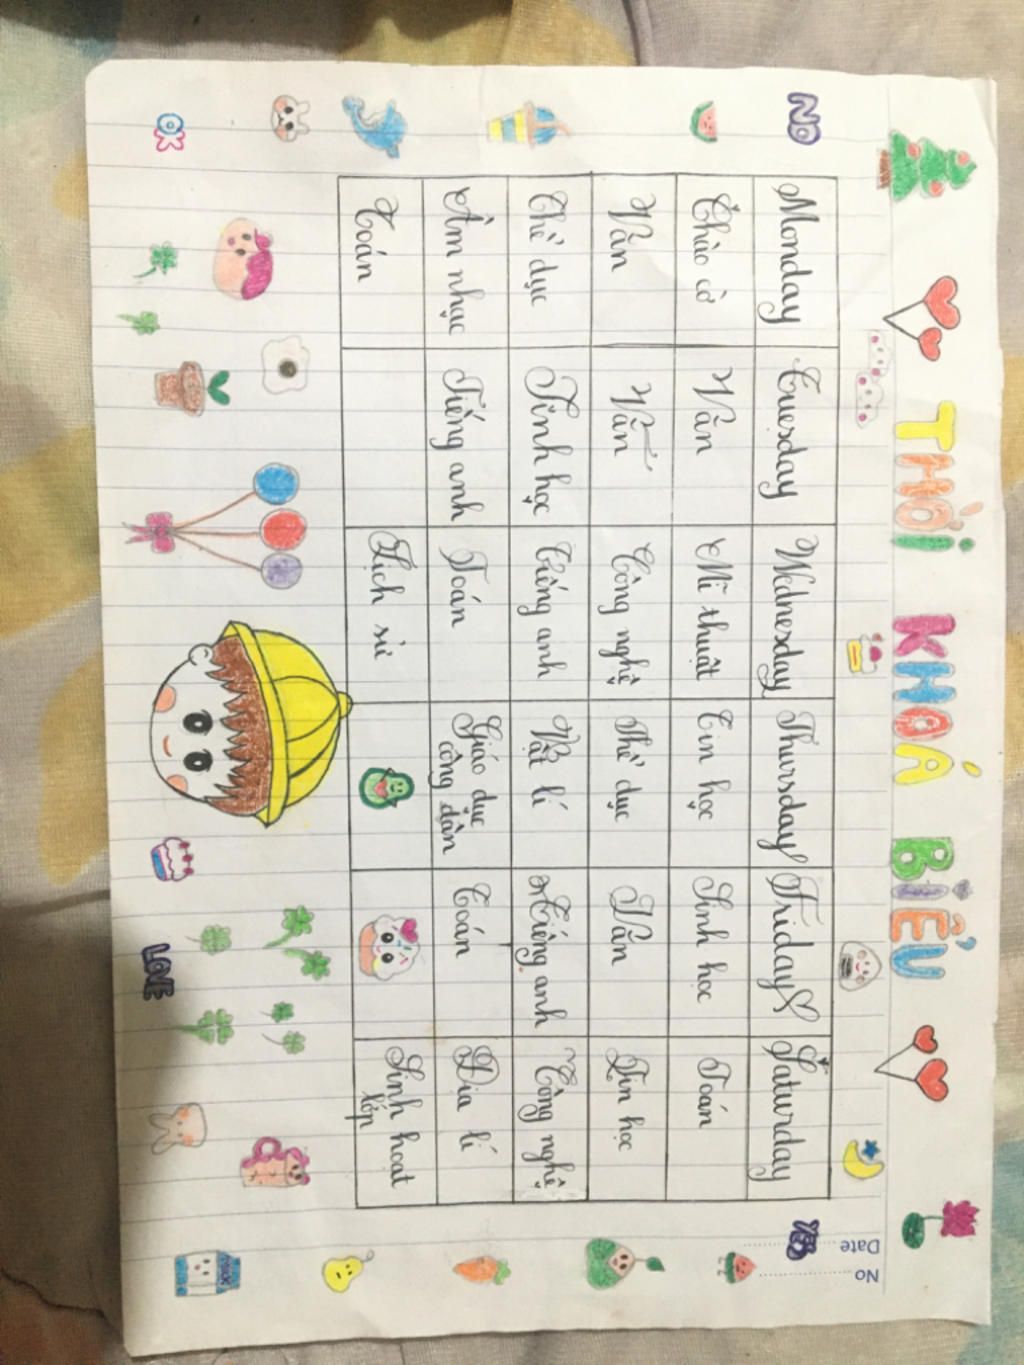 No
Date
THỜI KHOÁ BIỂU
NO
YES
Monday Tuesday Wednesday Thursday Friday Saturday
Chào cờ Văn Mĩ thuật Tin học Sinh học Toán
Văn Văn Công nghệ Thể dục Văn Tin học
Thể dục Sinh học Tiếng anh Vật lí Tiếng anh Công nghệ
Âm nhạc Tiếng anh Toán Giáo dục Toán Địa lí
công dân
Toán Lịch sử Sinh hoạt
lớp
OK
LOVE
MILK